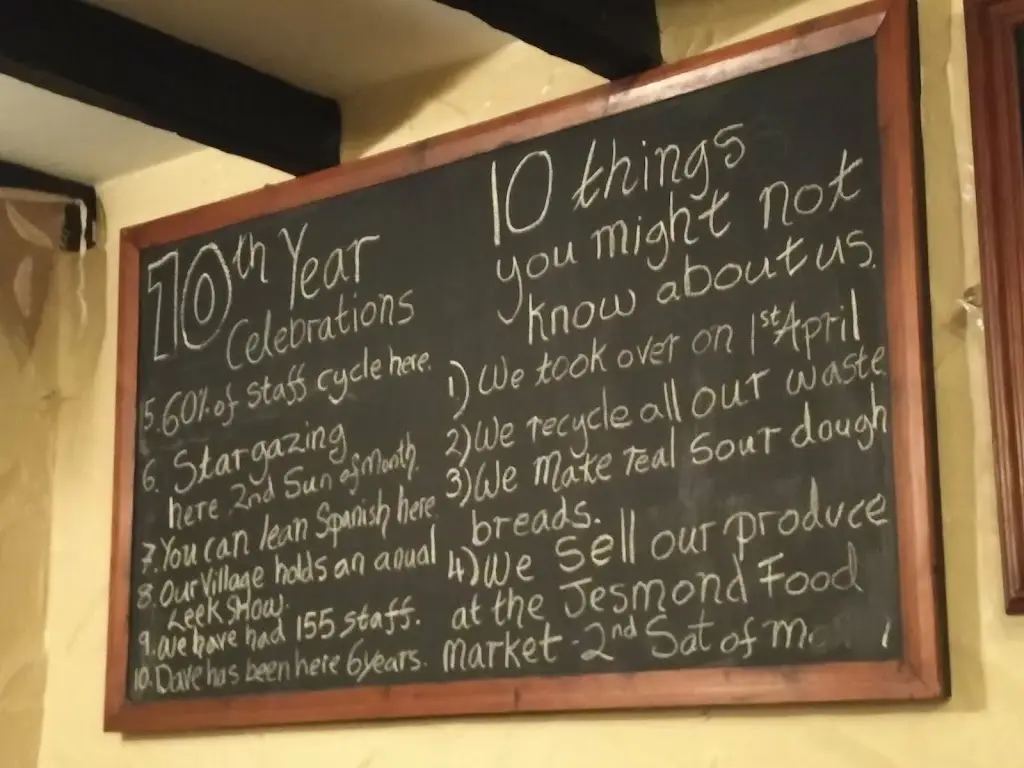 10th Year
Celebrations
5. 60% of staff cycle here.
6. Stargazing
here 2nd Sun of Month.
7. You can lean Spanish here
8. Our Village holds an anual
Leek Show.
9. We have had 155 staff.
10. Dave has been here 6 years.
10 things
you might not
know about us.
1) We took over on 1st April
2) We recycle all our waste
3) We make real Sour dough
breads.
4) We sell our produce
at the Jesmond Food
market - 2nd Sat of